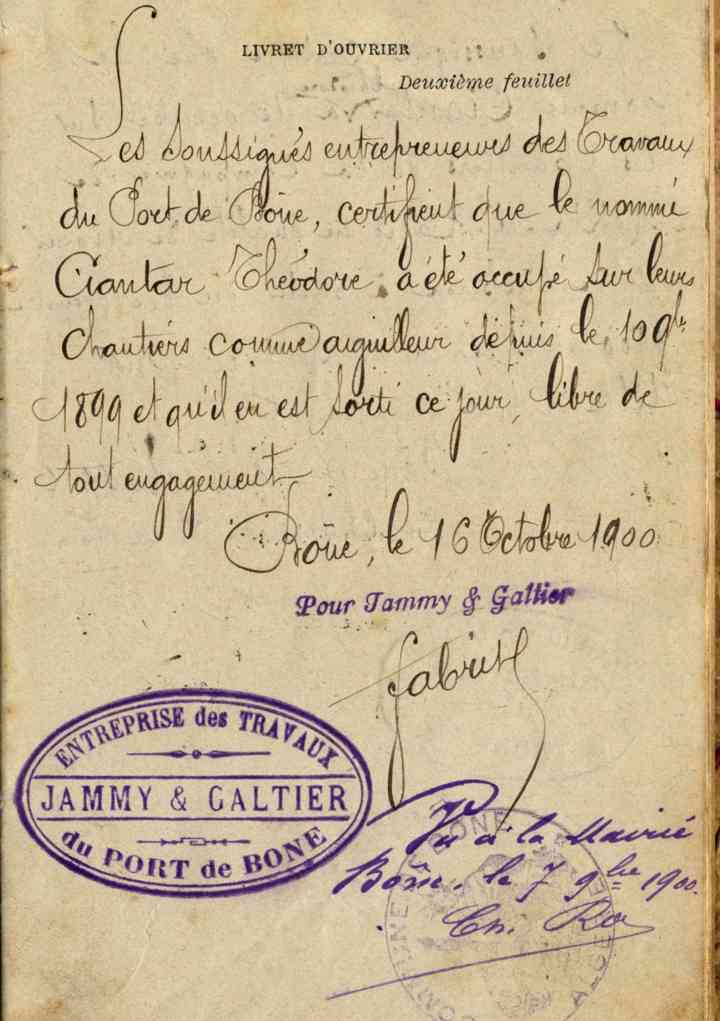 LIVRET D'OUVRIER
Deuxième feuillet
Les Soussignés entrepreneurs des Travaux
du Port de Bône, certifient que le nommé
Ciantar Théodore a été occupé sur leurs
chantiers comme aiguilleur depuis le 10 9bre
1899 et qu'il en est sorti ce jour, libre de
tout engagement
Bône, le 16 Octobre 1900
Pour Jammy & Galtier
ENTREPRISE des TRAVAUX
JAMMY & GALTIER
du PORT de BONE
Vu à la Mairie
Bône, le 7 9bre 1900.
Ch.
COMMUNE BONE